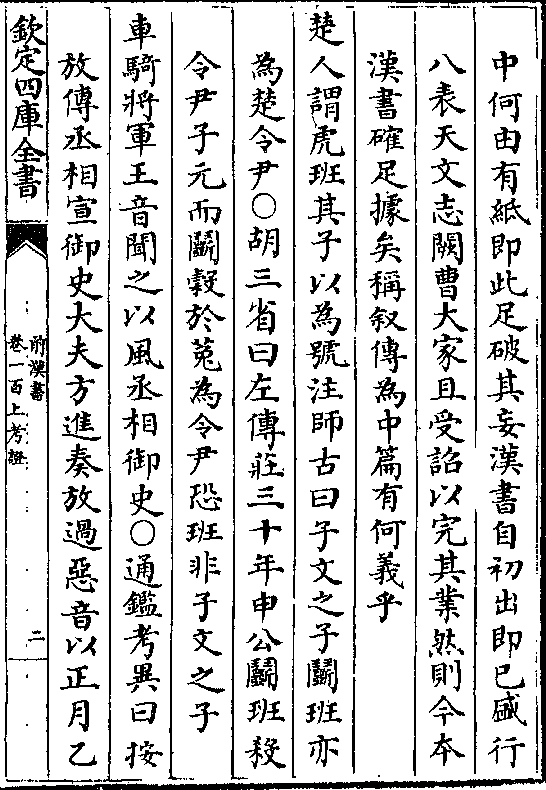 中何由有紙即此足破其妄漢書自初出即已盛行
八表天文志闕曹大家且受詔以完其業然則今本
漢書確足據矣稱叙傳為中篇有何義乎
楚人謂虎班其子以為號注師古曰子文之子鬭班亦
為楚令尹○胡三省曰左傳莊三十年申公鬭班殺
令尹子元而鬭穀於菟為令尹恐班非子文之子
車騎將軍王音聞之以風丞相御史○通鑑考異曰按
放傳丞相宣御史大夫方進奏放過惡音以正月乙
欽定四庫全書
前漢書
卷一百上考證
二